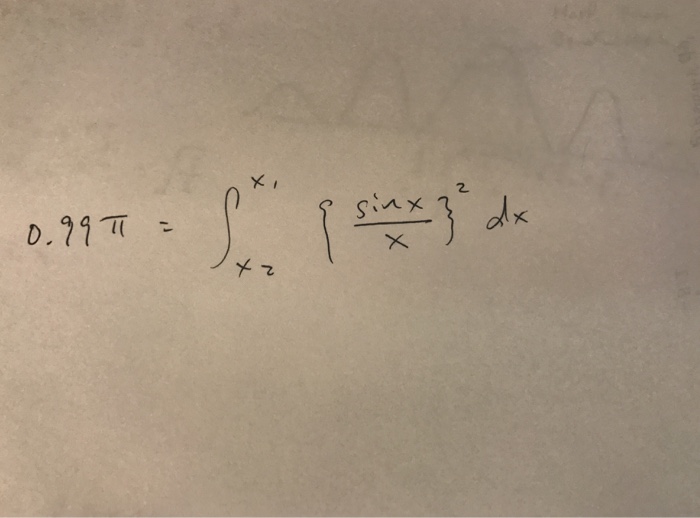 0.99 π = ∫_{x2}^{x1} { sinx / x }² dx